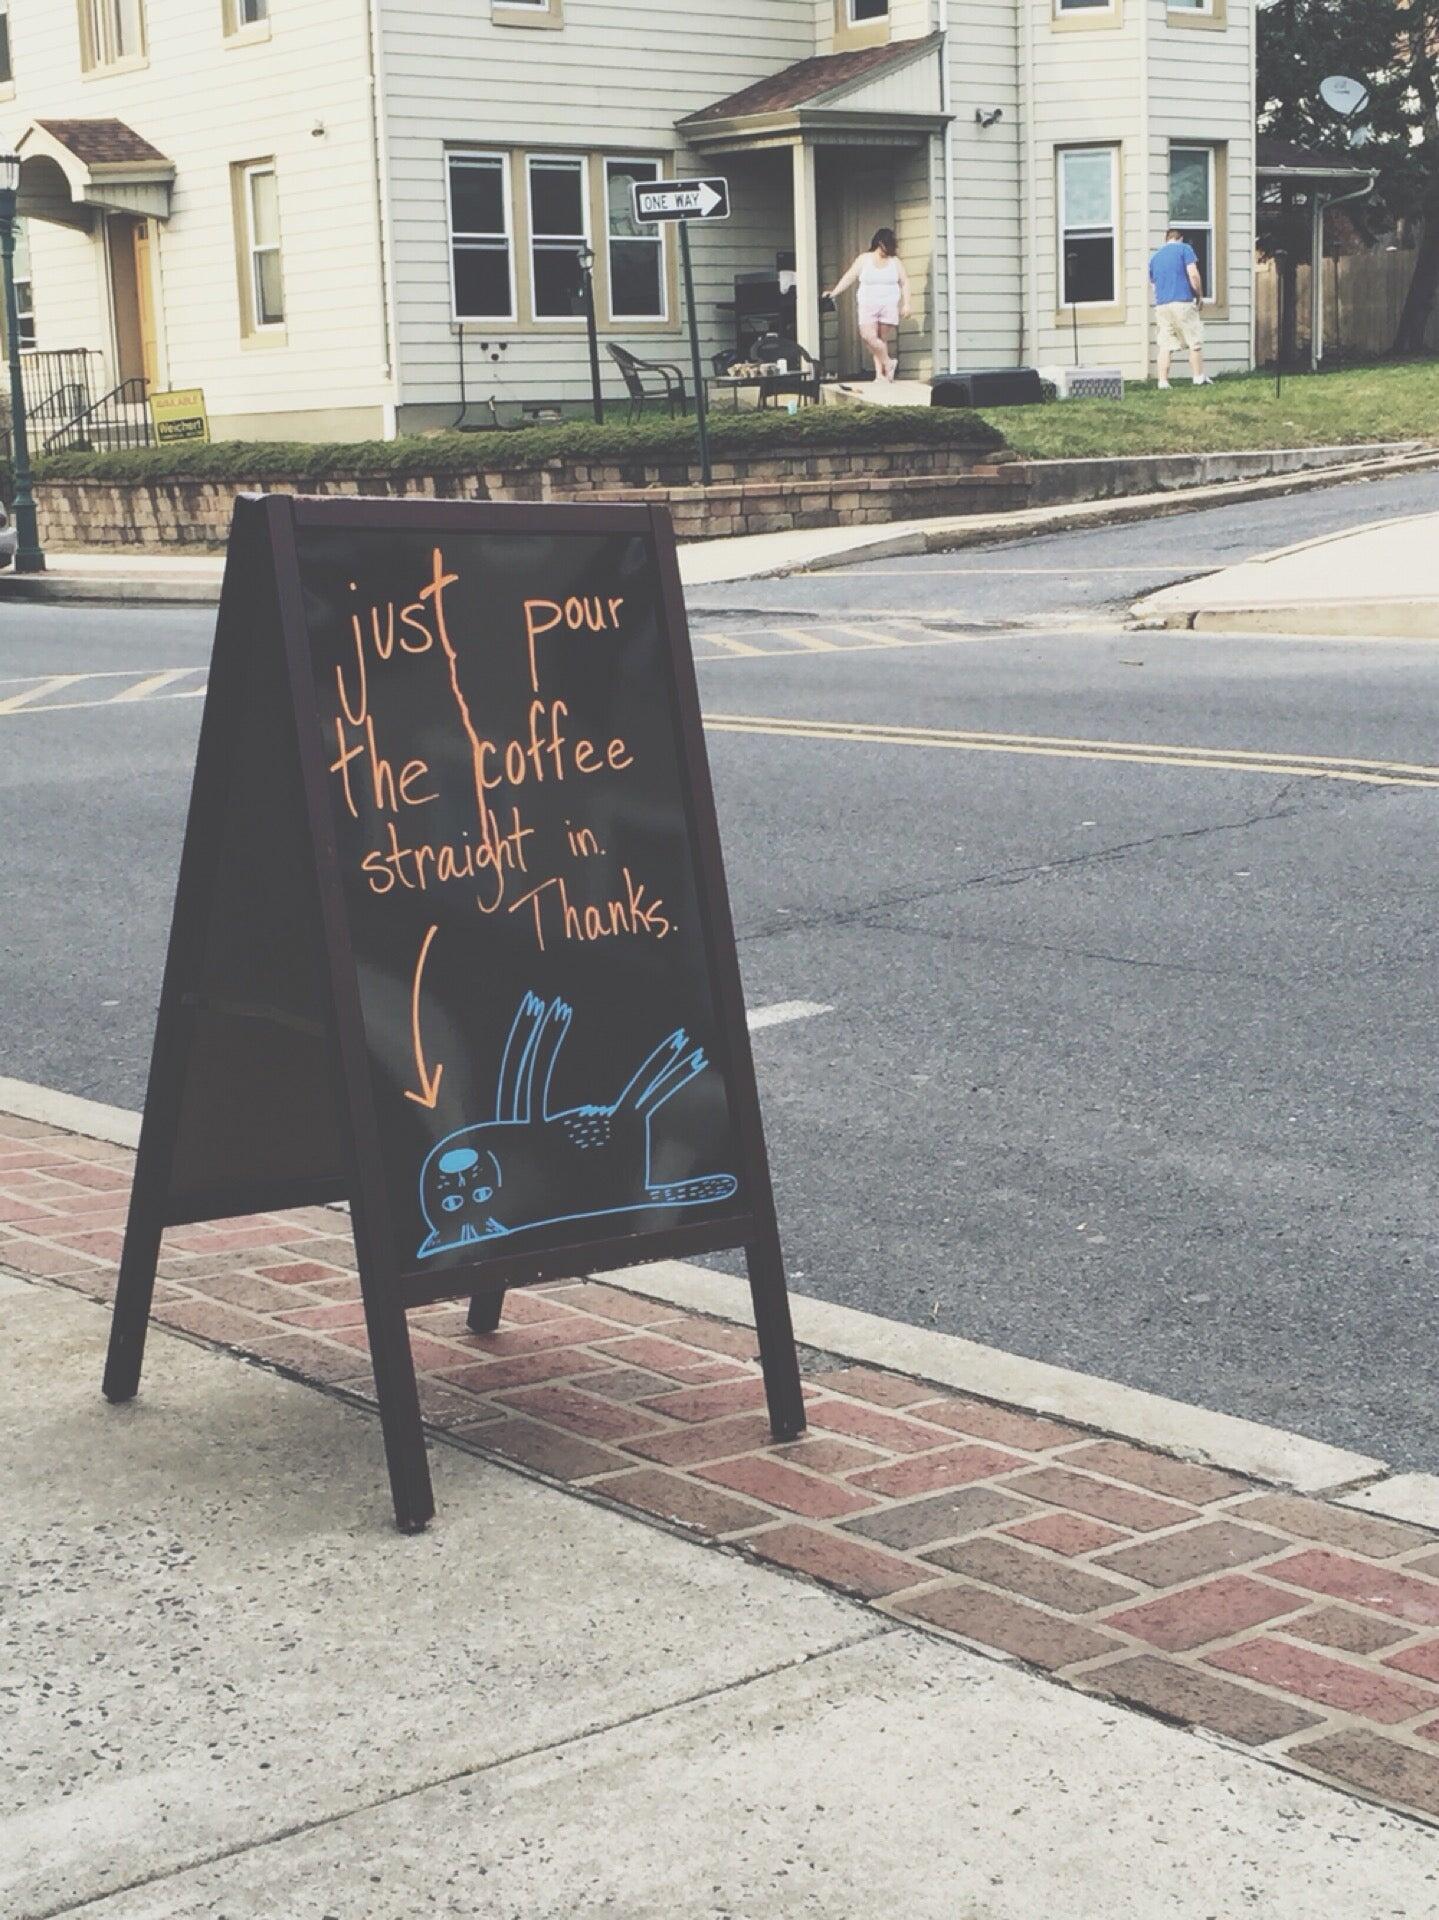 ONE WAY
AVAILABLE
Weichert
just pour
the coffee
straight in.
Thanks.